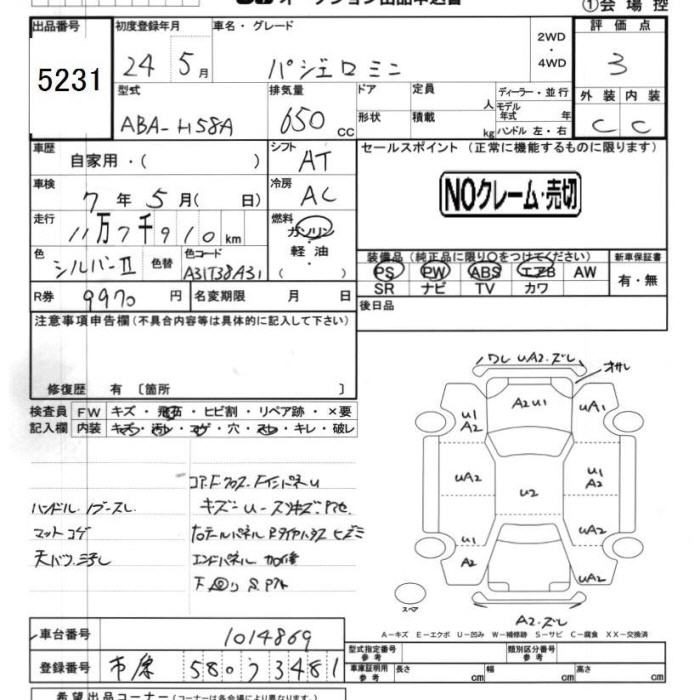 オークション出品申込書
①会場控
出品番号
5231
初度登録年月
24年5月
車名・グレード
パジェロミニ
2WD
・
4WD
評価点
3
外装 内装
C C
型式
ABA-H58A
排気量
650 cc
ドア
形状
定員 人
積載 kg
ディーラー・並行
モデル年式 年
ハンドル 左・右
車歴
自家用・( )
シフト
AT
セールスポイント (正常に機能するものに限ります)
NOクレーム・売切
車検
7年5月( 日)
冷房
AC
走行
11万7千910km
燃料
ガソリン
・
軽油
色
シルバーII
色替
色コード
A31T38A31
装備品 (純正品に限り○をつけてください)
PS PW ABS エアB AW
SR ナビ TV カワ
新車保証書
有・無
R券
9970円
名変期限 月 日
後日品
注意事項申告欄 (不具合内容等は具体的に記入して下さい)
修復歴 有 〔箇所 〕
検査員 FW キズ・飛石・ヒビ割・リペア跡・×要
記入欄 内装 キズ・汚レ・コゲ・穴・スレ・キレ・破レ
ハンドル
マットコゲ
エンドパネル
ワレ UA2.ズレ
オサレ
A2U1
U1
A2
UA1
UA2
U1
A2
U2
UA2
U1
A2
UA2
スペア
A2.ズレ
A-キズ E-エクボ U-凹み W-補修跡 S-サビ C-腐食 XX-交換済
車台番号
1014869
登録番号
580 3481
型式指定番号
参考
類別区分番号
参考
車庫証明用
参考
長さ cm 幅 cm 高さ cm
希望出品コーナー (コーナーは各会場により異なります)